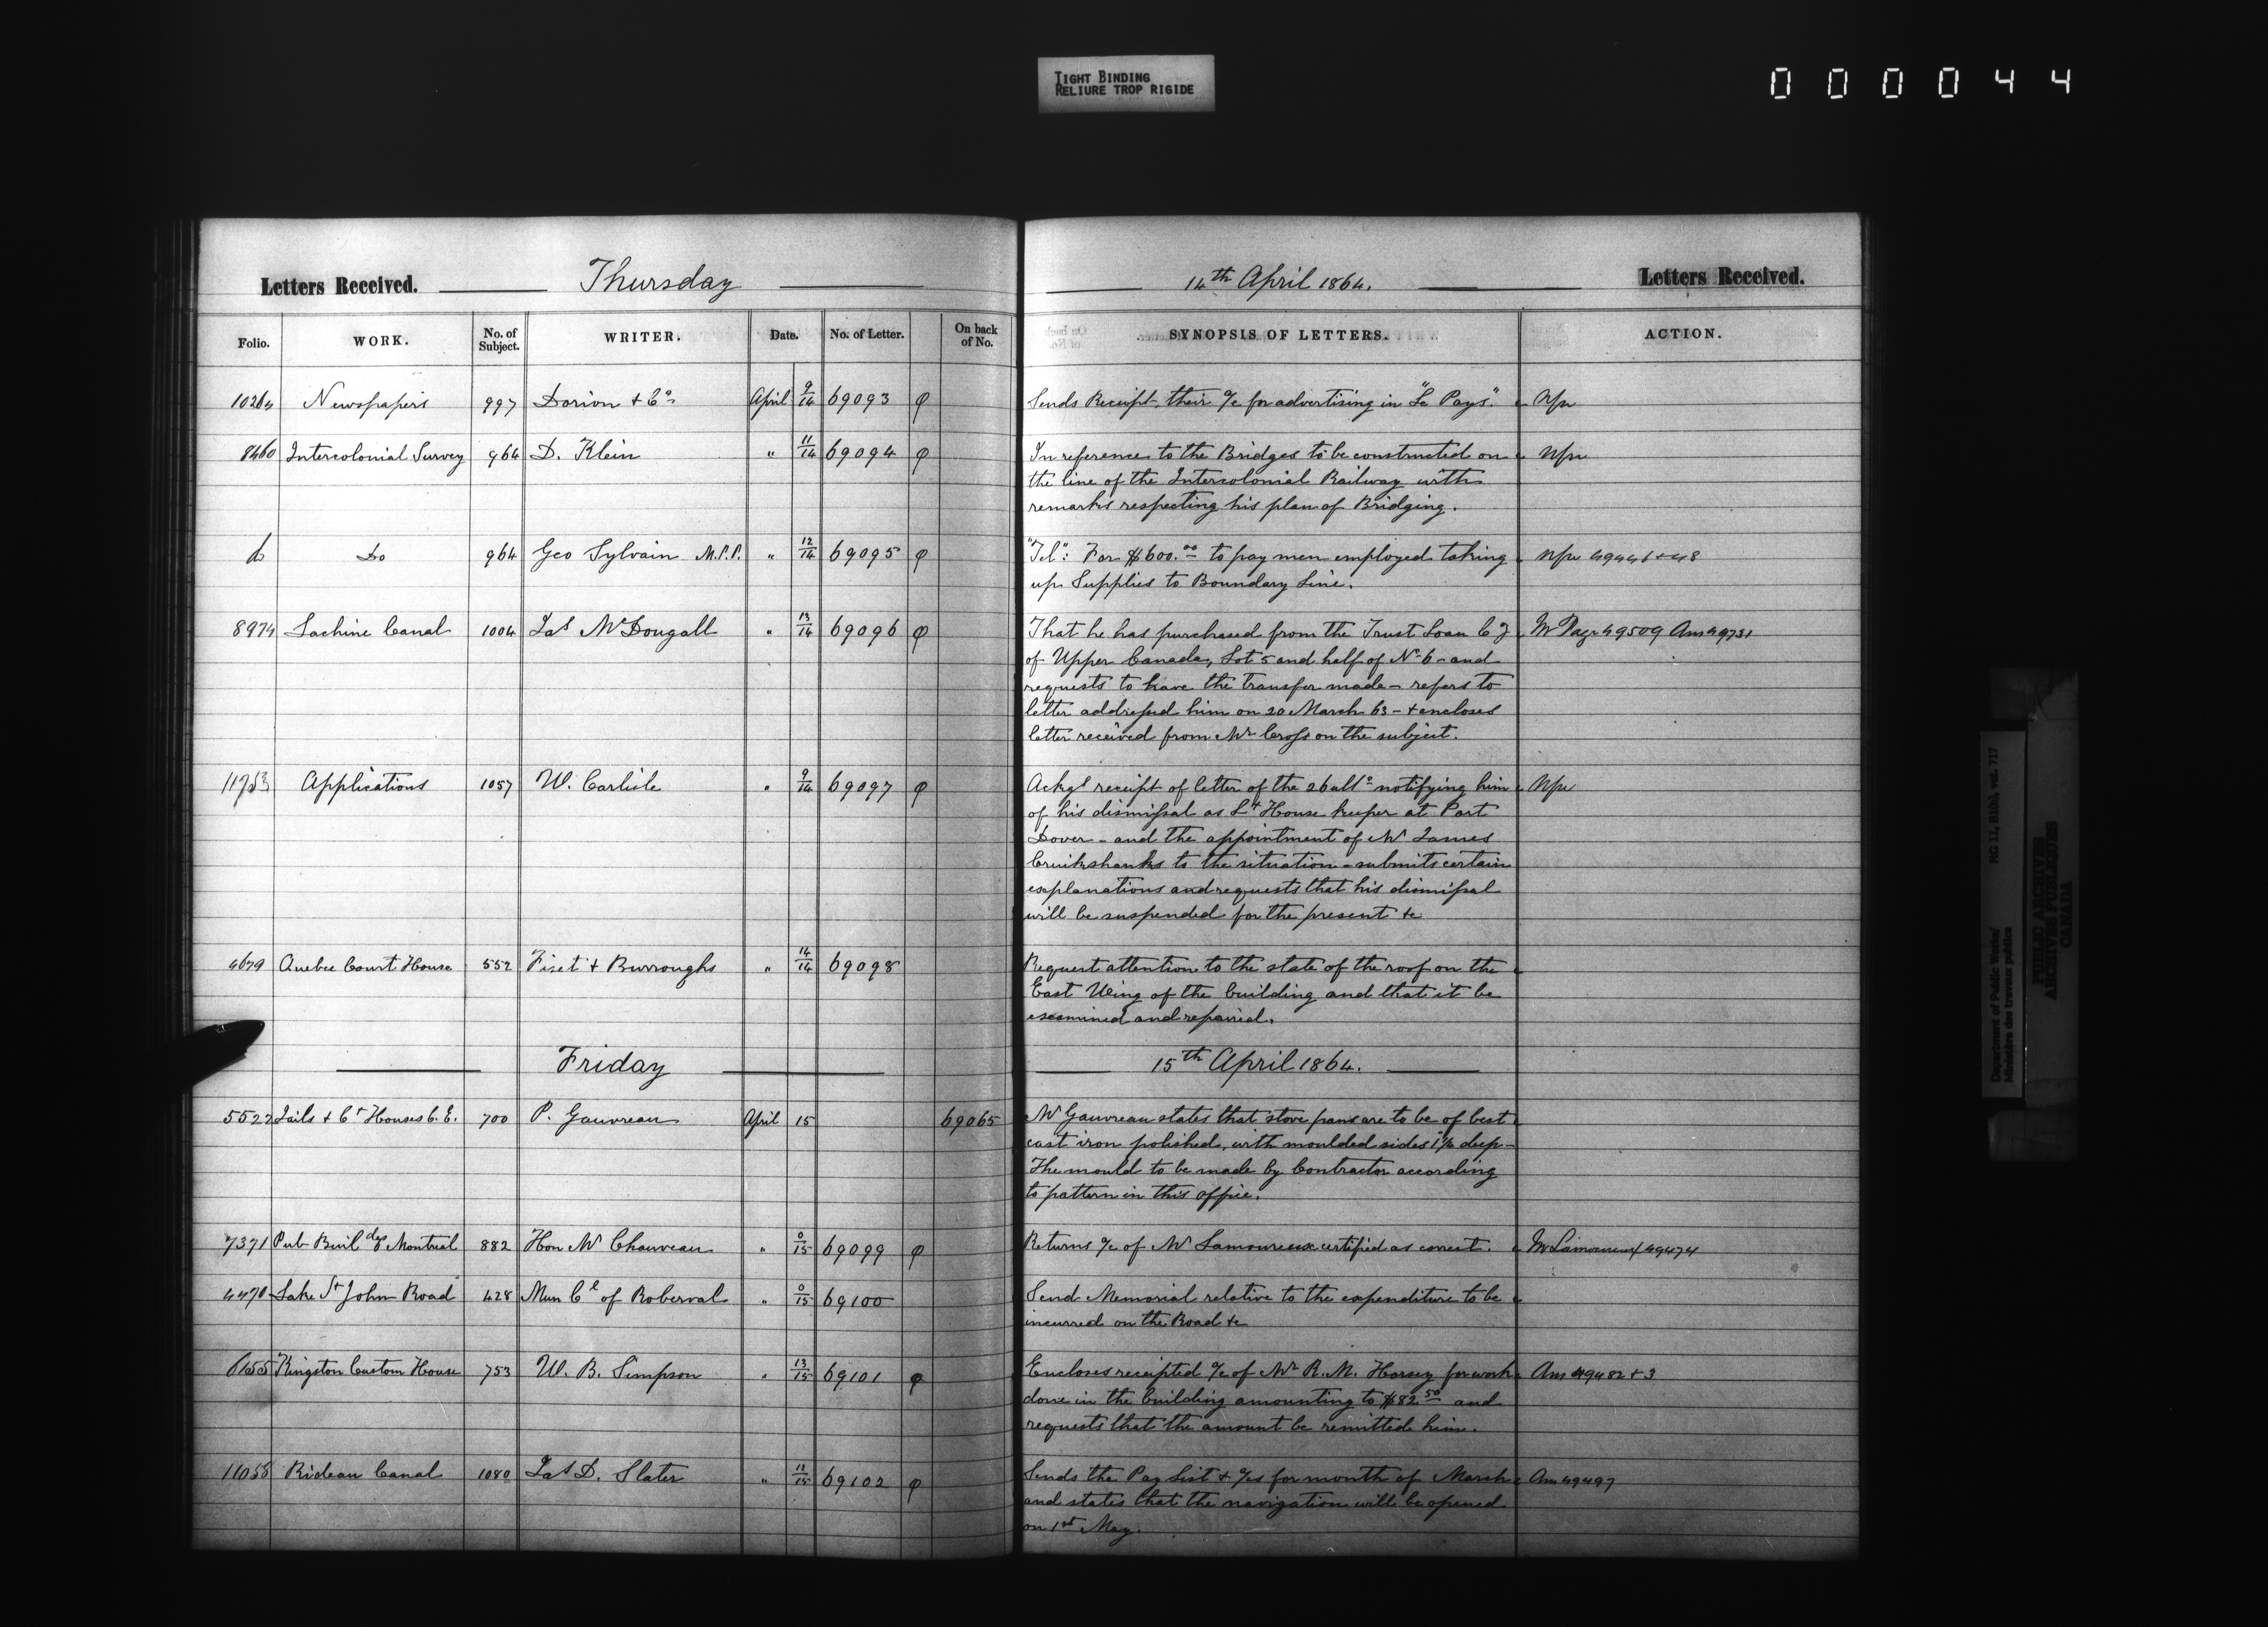 TIGHT BINDING
RELIURE TROP RIGIDE
000044
Letters Received. Thursday 14th April 1864. Letters Received.
Folio. WORK. No. of Subject. WRITER. Date. No. of Letter. On back of No. SYNOPSIS OF LETTERS. ACTION.
Newspapers 997 Dorion & Co April 9/14 69093 φ Sends Receipt, their a/c for advertising in "Le Pays".
8460 Intercolonial Survey 964 D. Klein " 11/14 69094 φ In reference to the Bridges to be constructed on
the line of the Intercolonial Railway with
remarks respecting his plan of Bridging.
Do 964 Geo Sylvain M.P.P. " 12/14 69095 φ "Tel": For $600.00 to pay men employed taking
up Supplies to Boundary Line.
8974 Lachine Canal 1004 Jas McDougall " 13/14 69096 φ That he has purchased from the Trust Loan Cy Mr Page 49509 Am 49731
of Upper Canada, Lot 5 and half of No 6 - and
requests to have the transfer made - refers to
letter addressed him on 20 March 63 - & encloses
letter received from Mr Cross on the subject.
11753 Applications 1057 W. Carlisle " 9/14 69097 φ Ackgs receipt of letter of the 26 ulto notifying him
of his dismissal as Lt House keeper at Port
Dover - and the appointment of Mr James
Cruikshanks to the situation - submits certain
explanations and requests that his dismissal
will be suspended for the present &c
4679 Quebec Court House 552 Fiset & Burroughs " 14/14 69098 Request attention to the state of the roof on the
East Wing of the building and that it be
examined and repaired.
Friday 15th April 1864.
5522 Jails & Ct Houses C.E. 700 P. Gauvreau April 15 69065 Mr Gauvreau states that stove pans are to be of best
cast iron polished, with moulded sides 1¼ deep -
The mould to be made by Contractor according
to pattern in this office.
7371 Pub Buildgs Montreal 882 Hon Mr Chauveau " 0/15 69099 φ Returns a/c of Mr Lamoureux certified as correct. Mr Lamoureux 49474
4470 Lake St John Road 428 Mun Cl of Roberval " 0/15 69100 Send Memorial relative to the expenditure to be
incurred on the Road &c
6155 Kingston Custom House 753 W. B. Simpson " 13/15 69101 φ Encloses receipted a/c of Mr R. M. Horsey for work Am 49482 & 3
done in the building amounting to $82.50 and
requests that the amount be remitted him.
11055 Rideau Canal 1080 Jas D. Slater " 12/15 69102 φ Sends the Pay List & a/cs for month of March Am 49497
and states that the navigation will be opened
on 1st May.
Department of Public Works/
Ministère des travaux publics
RG 11, B1(b), vol. 717
PUBLIC ARCHIVES
ARCHIVES PUBLIQUES
CANADA